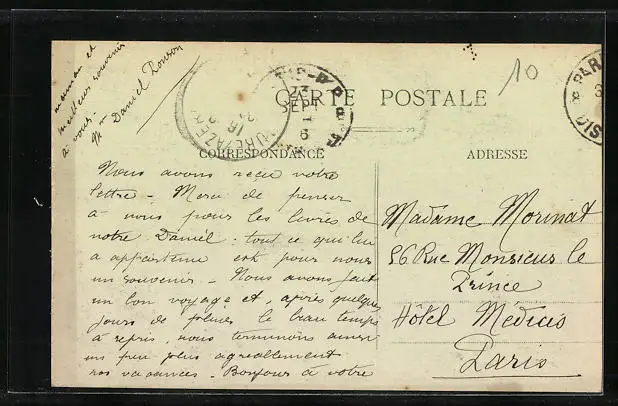 10
CARTE POSTALE
CORRESPONDANCE
ADRESSE
Nous avons reçu votre
lettre - Merci de penser
à nous pour les livres de
notre Daniel. tout ce qui lui
a appartenu est pour nous
un souvenir - Nous avons fait
un bon voyage et, après quelques
jours de pluie le beau temps
a repris, nous terminons ainsi
un peu plus agréablement
nos vacances - Bonjour à votre
maman et
meilleur souvenir
à vous.
Mme Daniel
Madame Morinat
56 Rue Monsieur le
Prince
Hôtel Médicis
Paris
SEPT
16